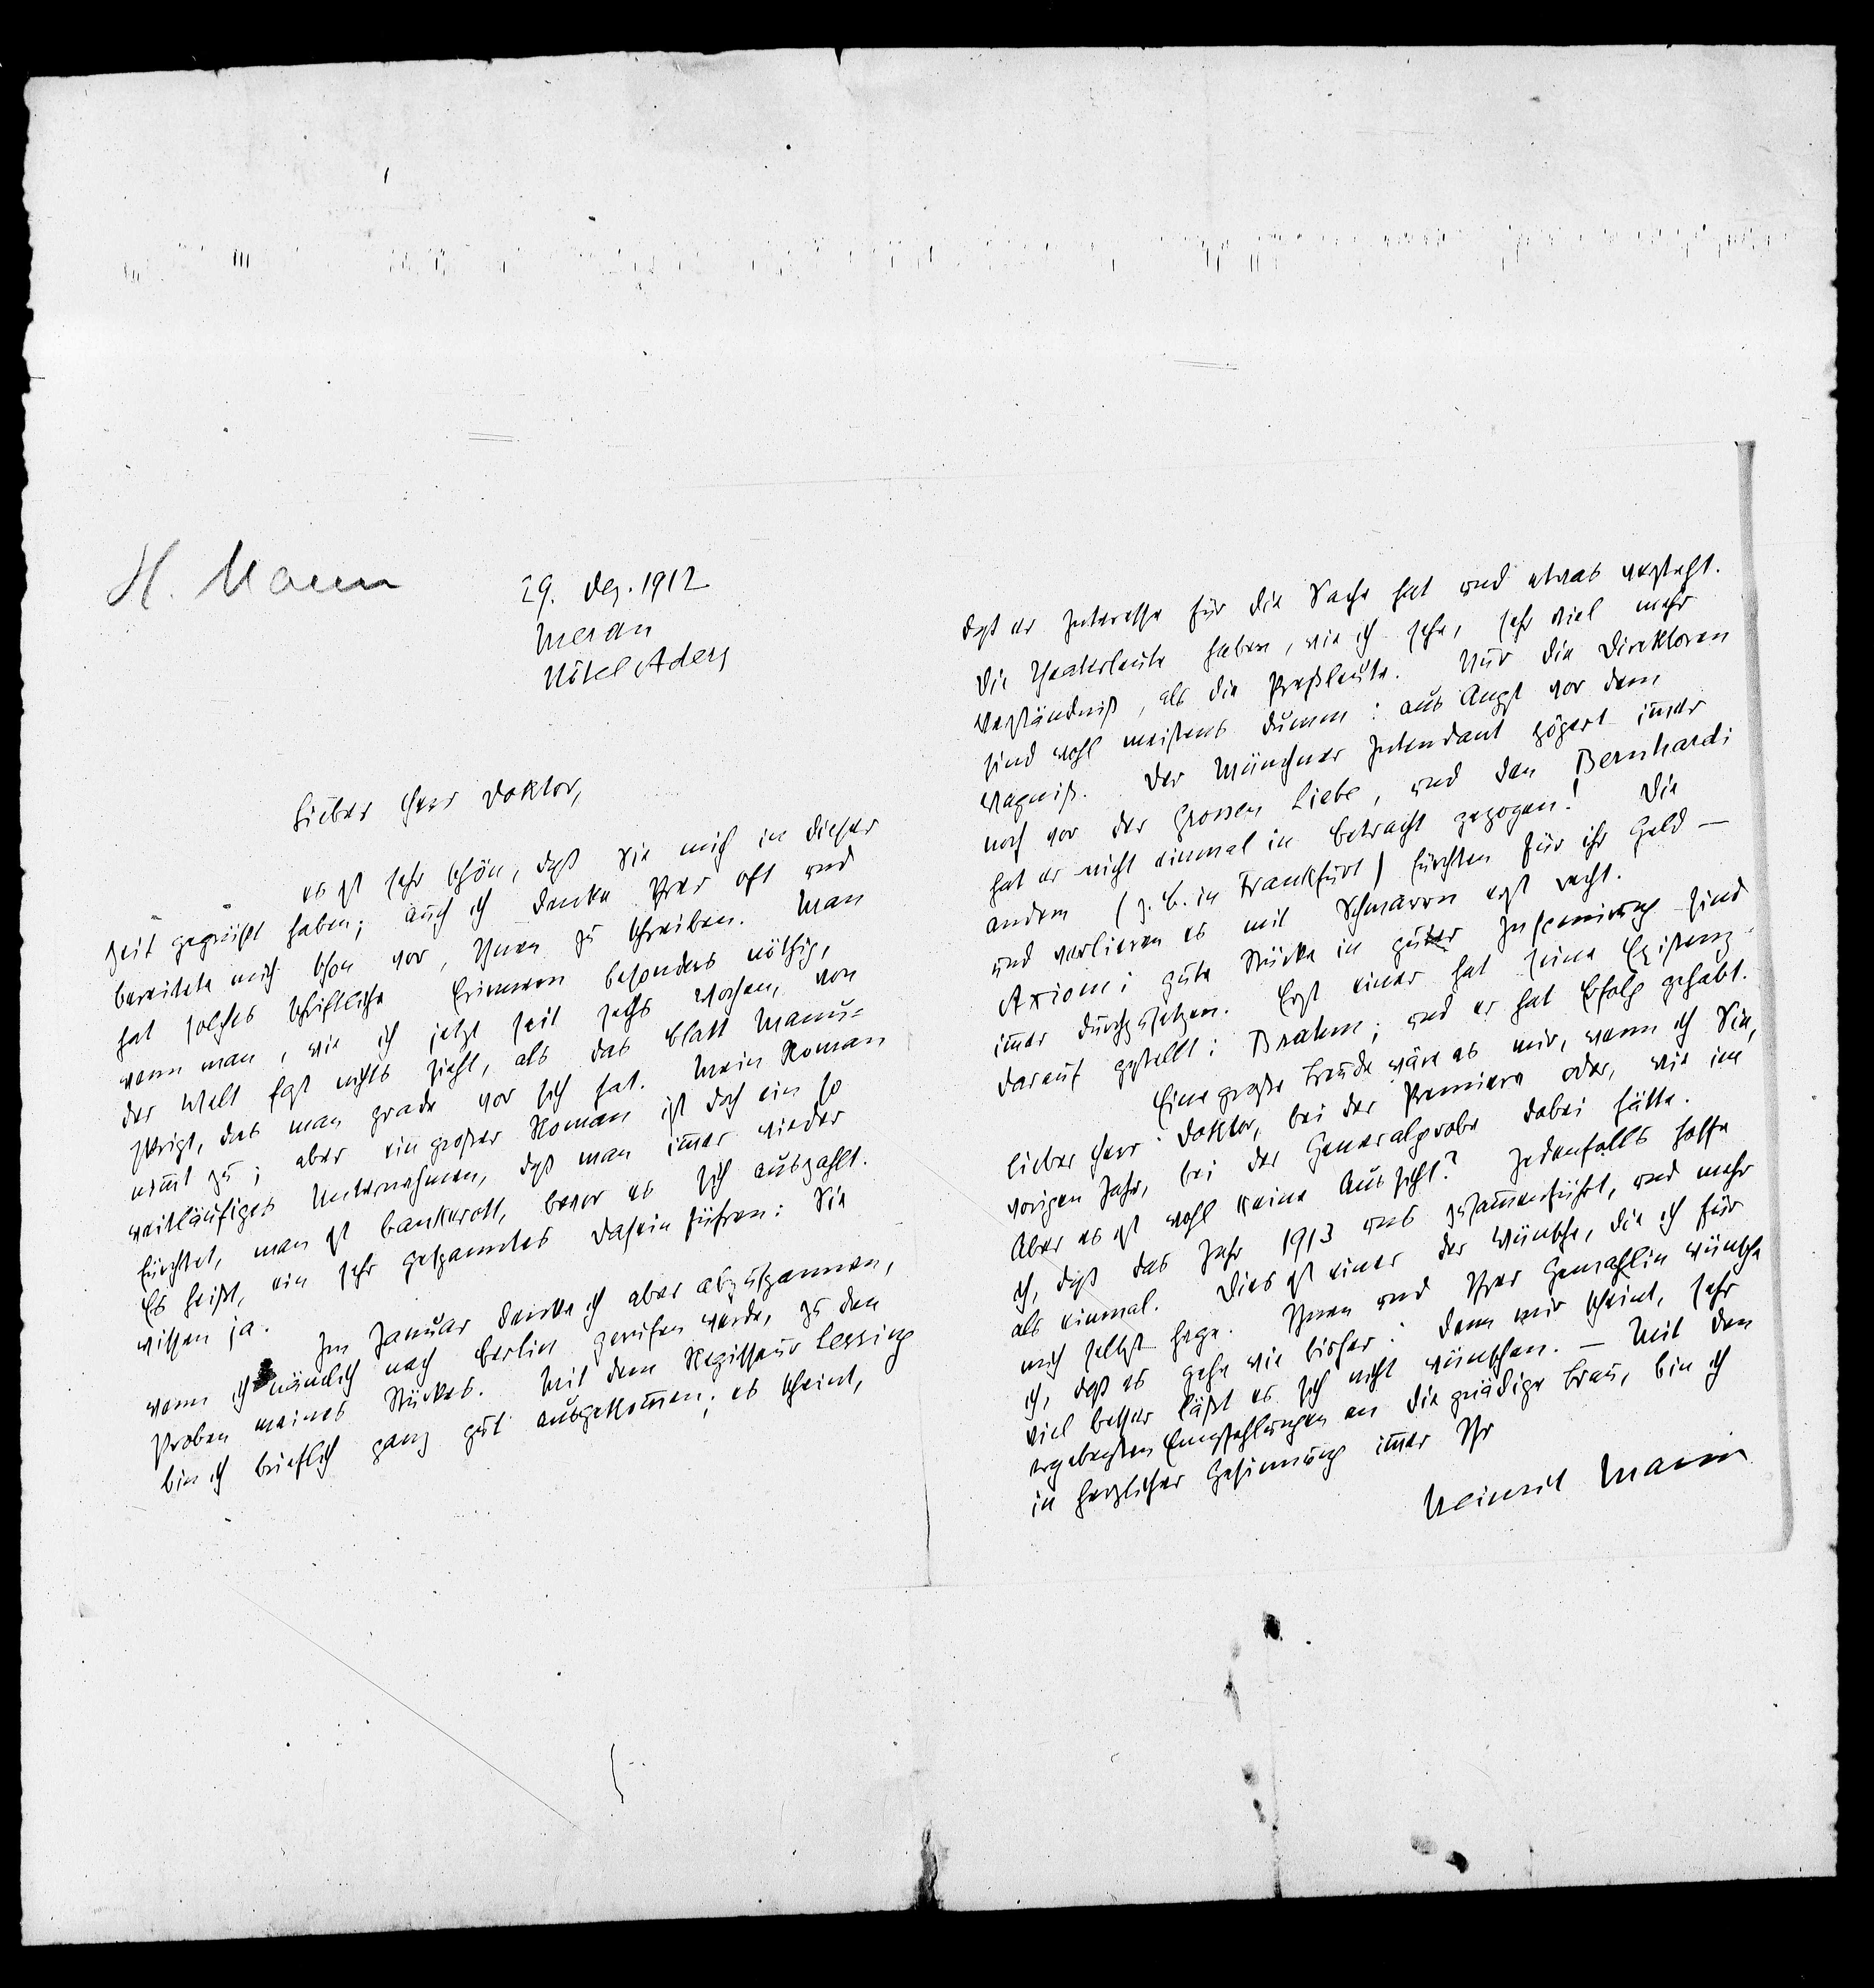 H. Mann
29. Dez. 1912
Meran
Hôtel Aders
Lieber Herr Doktor,
es ist sehr schön, daß Sie mich in dieser
Zeit gegrüßt haben; auch ich denke Ihrer oft und
bereitete mich schon vor, Ihnen zu schreiben. Man
hat solches schriftliche Erinnern besonders nöthig,
wenn man, wie ich jetzt seit sechs Wochen, von
der Welt fast nichts sieht, als das Blatt Manu-
skript, das man grade vor sich hat. Mein Roman
nimmt zu; aber ein großer Roman ist doch ein so
weitläufiges Unternehmen, daß man immer wieder
fürchtet, man ist bankerott, bevor es sich auszahlt.
Es heißt, ein sehr gespanntes Dasein führen: Sie
wissen ja.
Im Januar denke ich aber abzuspannen,
wenn ich nämlich nach Berlin gerufen werde, zu den
Proben meines Stückes. Mit dem Regisseur Lessing
bin ich brieflich ganz gut ausgekommen; es scheint,
daß er Interesse für die Sache hat und etwas versteht.
Die Theaterleute haben, wie ich sehe, sehr viel mehr
Verständniß, als die Preßleute. Nur die Direktoren
sind wohl meistens dumm: aus Angst vor dem
Wagniß. Der Münchner Intendant zögert immer
noch vor der Grossen Liebe, und den Bernhardi
hat er nicht einmal in Betracht gezogen! Die
andern (z. B. in Frankfurt) fürchten für ihr Geld –
und verlieren es mit Schmarrn erst recht.
Axiom: gute Stücke in guter Inscenirung sind
immer durchzusetzen. Erst einer hat seine Existenz
darauf gestellt: Brahm; und er hat Erfolg gehabt.
Eine große Freude wäre es mir, wenn ich Sie,
lieber Herr Doktor, bei der Premiere oder, wie im
vorigen Jahr, bei der Generalprobe dabei hätte.
Aber es ist wohl keine Aussicht? Jedenfalls hoffe
ich, daß das Jahr 1913 uns zusammenführt, und mehr
als einmal. Dies ist einer der Wünsche, die ich für
mich selbst hege. Ihnen und Ihrer Gemahlin wünsche
ich, daß es gehe wie bisher: denn mir scheint, sehr
viel besser läßt es sich nicht wünschen. – Mit den
ergebensten Empfehlungen an die gnädige Frau, bin ich
in herzlicher Gesinnung immer Ihr
Heinrich Mann